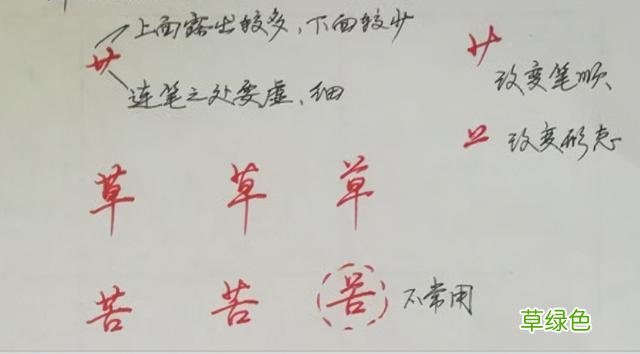 上面露出较多,下面较少
艹
连笔之处要虚、细
艹 改变笔顺
改变形态
草 草 草
苦 苦 苦 不常用
草绿色